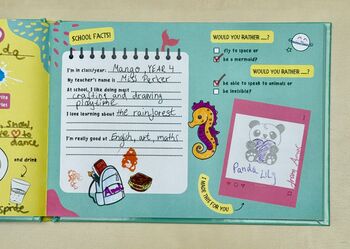 da
School,
love to
dance
and drink
sprite
SCHOOL FACTS!
I'm in class/year: Mango, YEAR 4
My teacher's name is Miss Parker
At school, I like doing most
crafting and drawing
playtime
I love learning about the rainforest
I'm really good at English, art, maths
WOULD YOU RATHER ....?
fly to space or
be a mermaid?
WOULD YOU RATHER ....?
be able to speak to animals or
be invisible?
Panda Lily
I MADE THIS FOR YOU